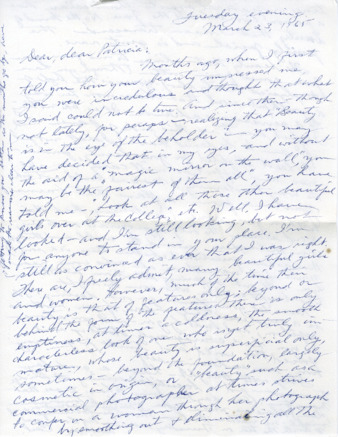 Tuesday evening
March 23, 1965
Dear, dear Patricia:
Months ago, when I first
told you how your beauty impressed me,
you were incredulous and thought that what
I said could not be true. And since then - though
not lately, for perhaps - realizing that Beauty
is in the eye of the beholder - you may
have decided that in my eyes, and without
the aid of a "magic mirror on the wall" you
may be the fairest of them all" you have
told me - "Look at all those other beautiful
girls over at the College", etc. Well, I have
looked - and I'm still looking, but not
for anyone to stand in your place. I'm
still as convinced as ever that I was right.
There are, I freely admit many beautiful girls
and women. However, much of the time their
beauty is that of features only; beyond or
behind the form of the features there is only
emptiness, at times a coldness, the smooth
characterless look of one who isn't truly
mature, whose beauty is superficial only,
sometimes beyond the foundation, largely
cosmetic in origin, or "beauty" such as a
commercial photographer at times strives
to confer on a woman through her photograph
by smoothing out & diminishing all the